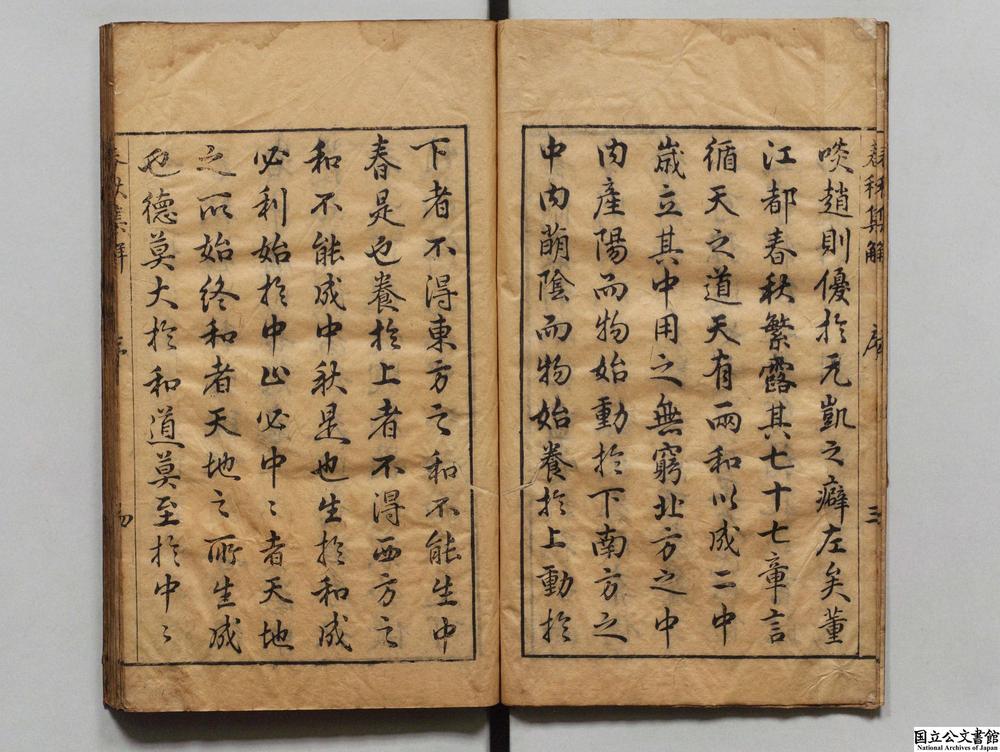 啖趙則優於元凱之癖左矣董
江都春秋繁露其七十七章言
循天之道天有兩和以成二中
歲立其中用之無窮北方之中
內產陽而物始動於下南方之
中內萌陰而物始養於上動於
下者不得東方之和不能生中
春是也養於上者不得西方之
和不能成中秋是也生於和成
必利始於中止必中〻者天地
之所始終和者天地之所生成
也德莫大於和道莫至於中〻
春秋集解
序
三
国立公文書館
National Archives of Japan